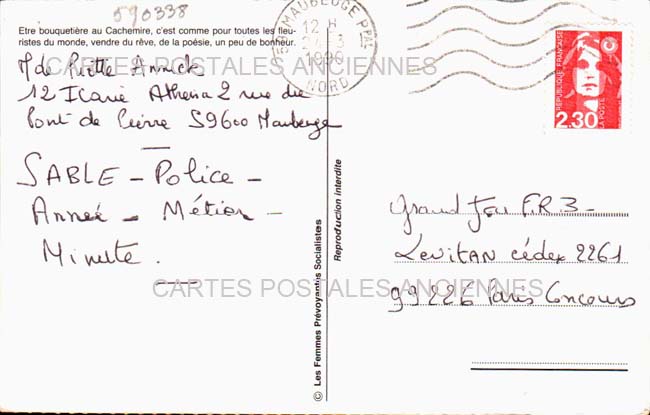 590338
Etre bouquetière au Cachemire, c'est comme pour toutes les fleu-
ristes du monde, vendre du rêve, de la poésie, un peu de bonheur.
CARTES POSTALES ANCIENNES
12 Icarie Athena 2 rue du
Pont de Pierre 59600 Maubeuge
SABLE - Police -
Année - Métier -
Minute.
© Les Femmes Prévoyantes Socialistes
Reproduction interdite
MAUBEUGE PPAL
12 H
1990
NORD
REPUBLIQUE FRANÇAISE
LA POSTE
2,30
Grand Jeu F.R.3-
Levitan cédex 2261
99226 Paris Concours
CARTES POSTALES ANCIENNES